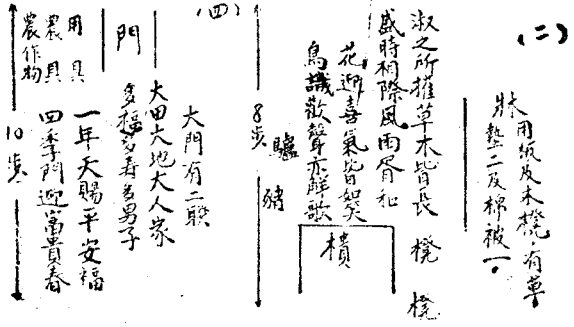 (二)
牀用紙及木櫈，有草
墊二及棉被一。
淑之所搉草木皆長
盛時相際風雨會和
花迎喜氣皆如笑
鳥識歡聲亦解歌
櫈
櫈
櫃
驢
豬
8步
(四)
大門有二联
大田大地大人家
多福多寿多男子
一年天賜平安福
四季門迎富貴春
門
用具
農具
農作物
10步